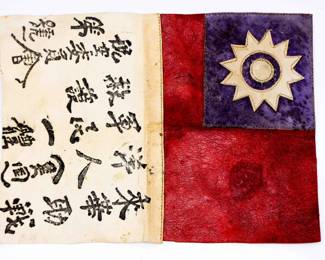 來華助戰洋人(美國)
軍民一體救護
航空委員會